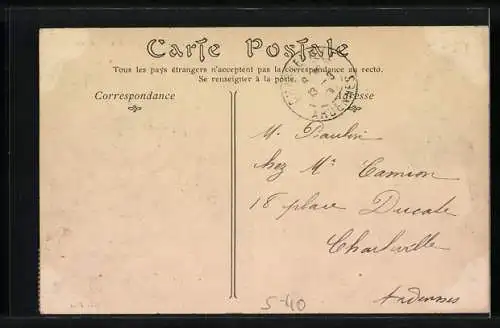 Carte Postale
Tous les pays étrangers n'acceptent pas la correspondance au recto.
Se renseigner à la poste.
Correspondance
Adresse
ARDENNES
M. Paulin
chez Mr Camion
18 place Ducale
Charleville
Ardennes
5-40